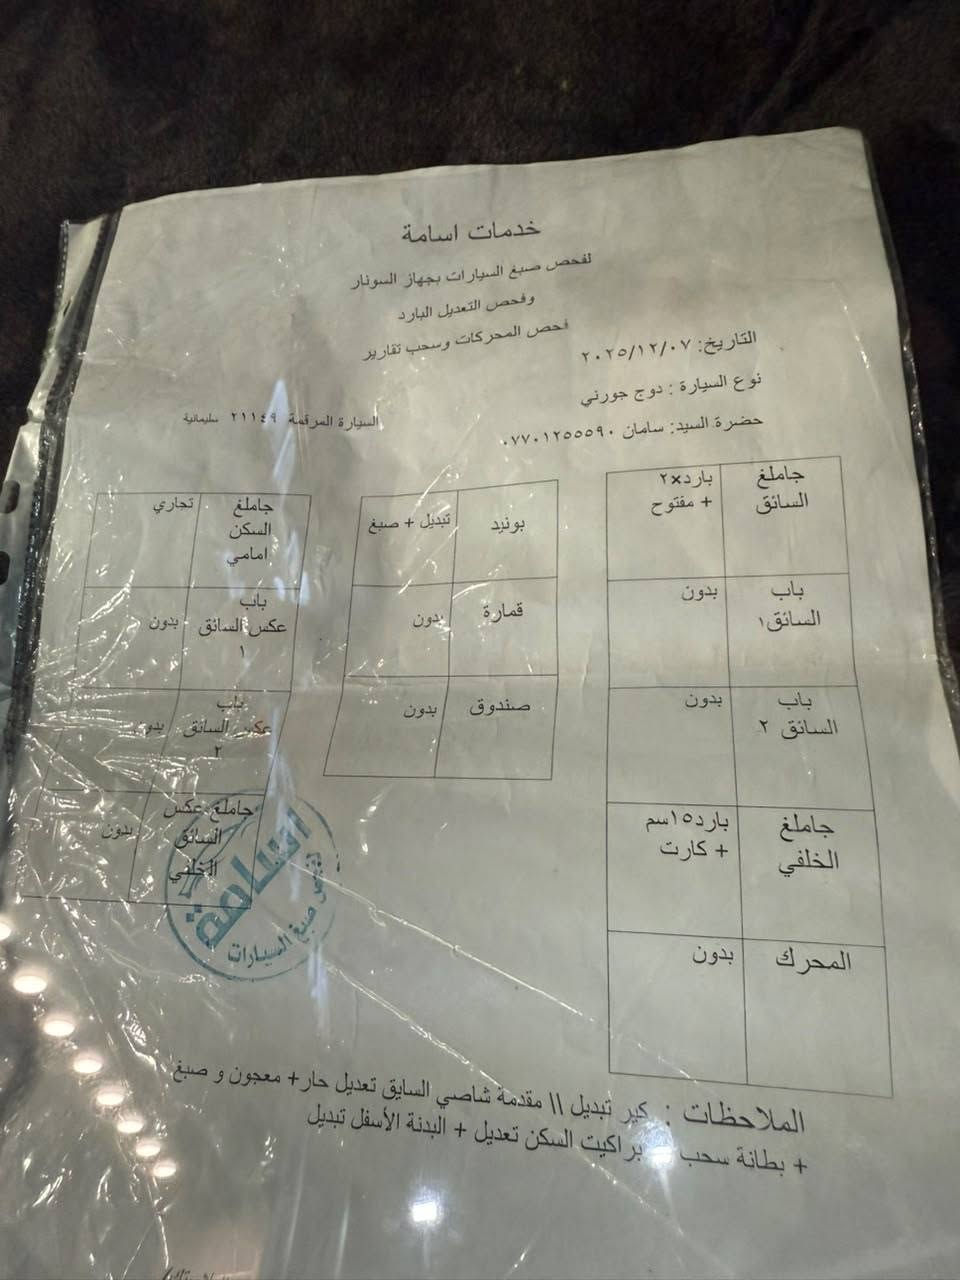 خدمات اسامة
لفحص صبغ السيارات بجهاز السونار
وفحص التعديل البارد
فحص المحركات وسحب تقارير
التاريخ: ٢٠٢٥/١٢/٠٧
نوع السيارة : دوج جورني
حضرة السيد: سامان ٠٧٧٠١٢٥٥٥٩٠
السيارة المرقمة ٢١١٤٩ سليمانية
جاملغ
السائق
بارد×٢
+ مفتوح
باب
السائق١
بدون
باب
السائق ٢
بدون
جاملغ
الخلفي
بارد١٥سم
+ كارت
المحرك
بدون
بونيد
تبديل + صبغ
قمارة
بدون
صندوق
بدون
جاملغ
السكن
امامي
تجاري
باب
عكس السائق
١
بدون
باب
عكس السائق
٢
بدون
جاملغ عكس
السائق
الخلفي
بدون
اسامة
لفحص صبغ السيارات
الملاحظات : كير تبديل \\ مقدمة شاصي السايق تعديل حار+ معجون و صبغ
+ بطانة سحب براكيت السكن تعديل + البدنة الأسفل تبديل